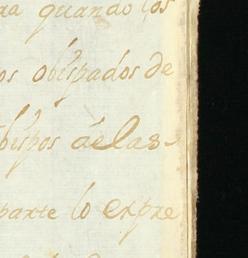 quando los
os obispados de
bispos de las
parte lo expre